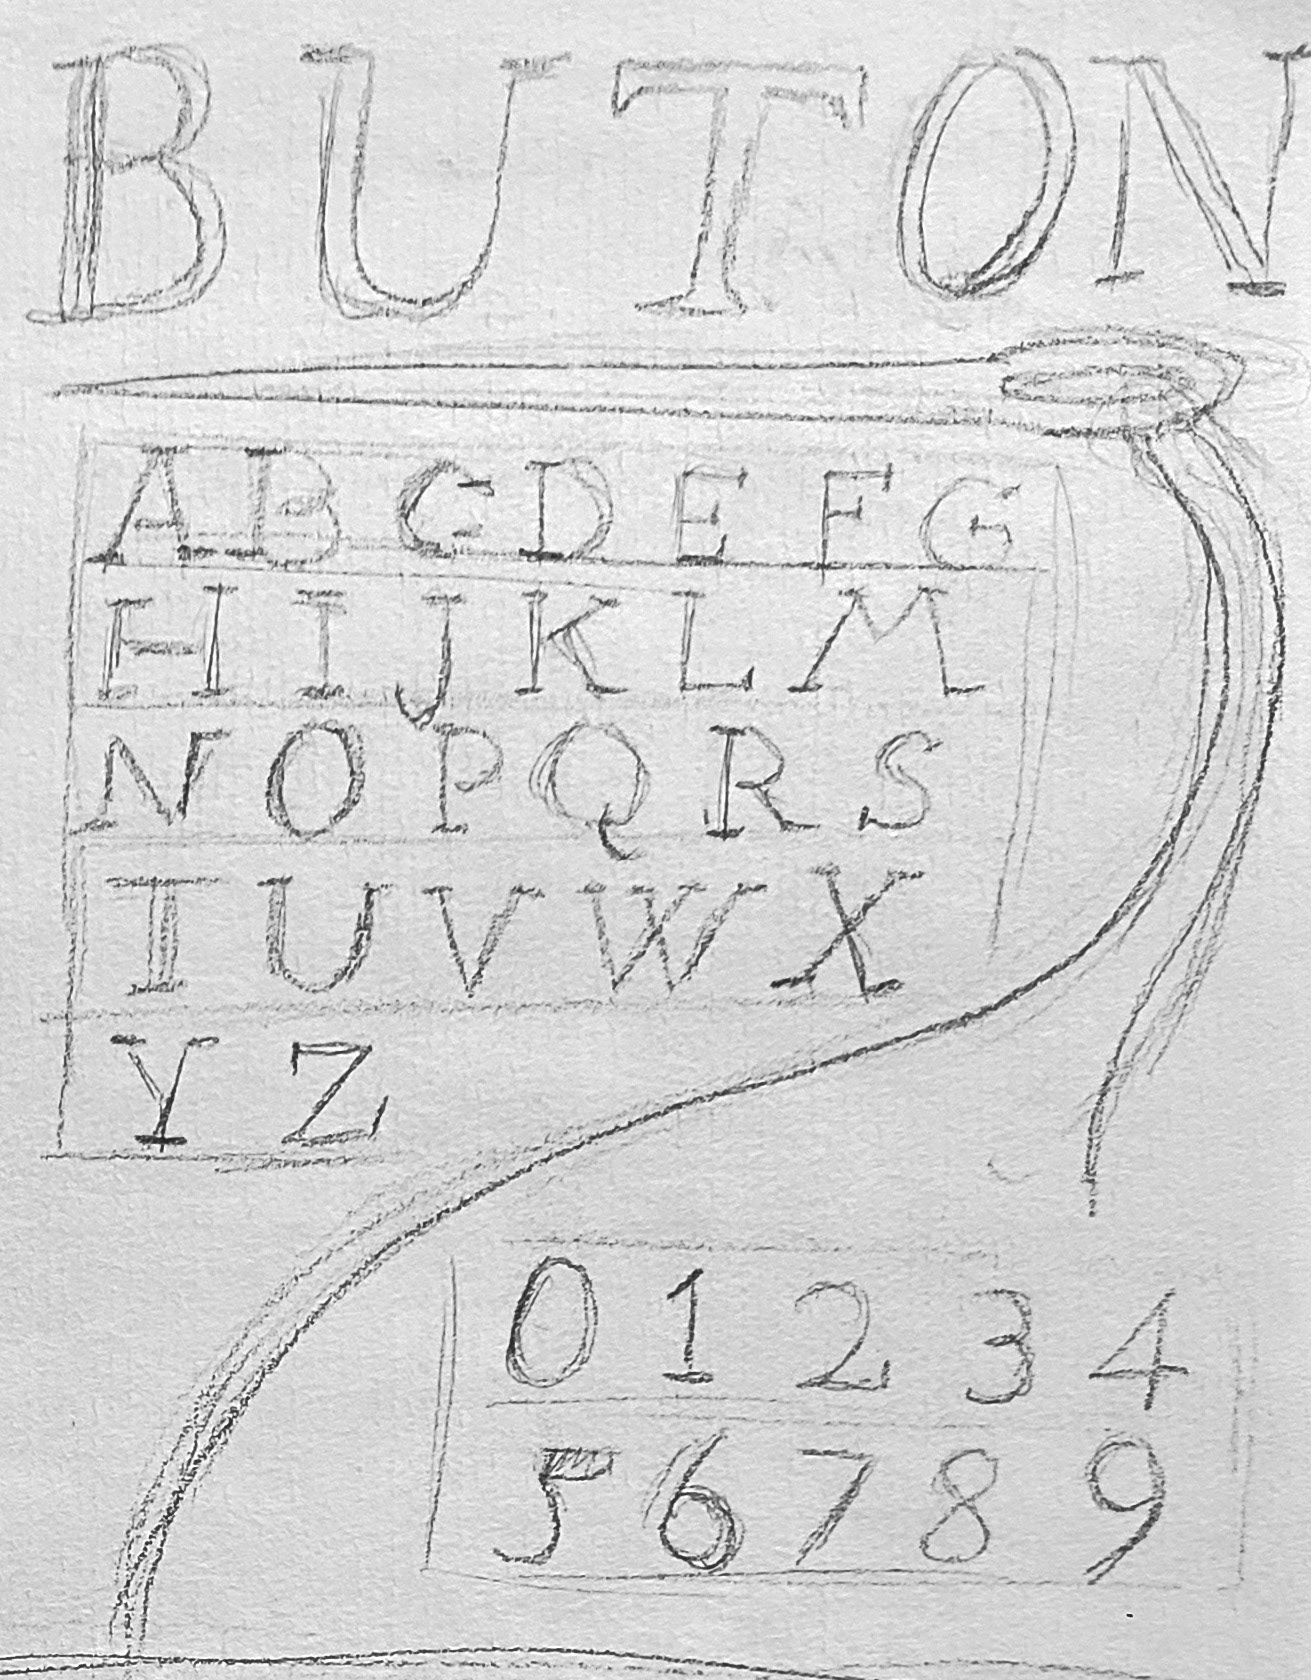 BUTON
ABCDEFG
HIJKLM
NOPQRS
TUVWX
YZ
01234
56789